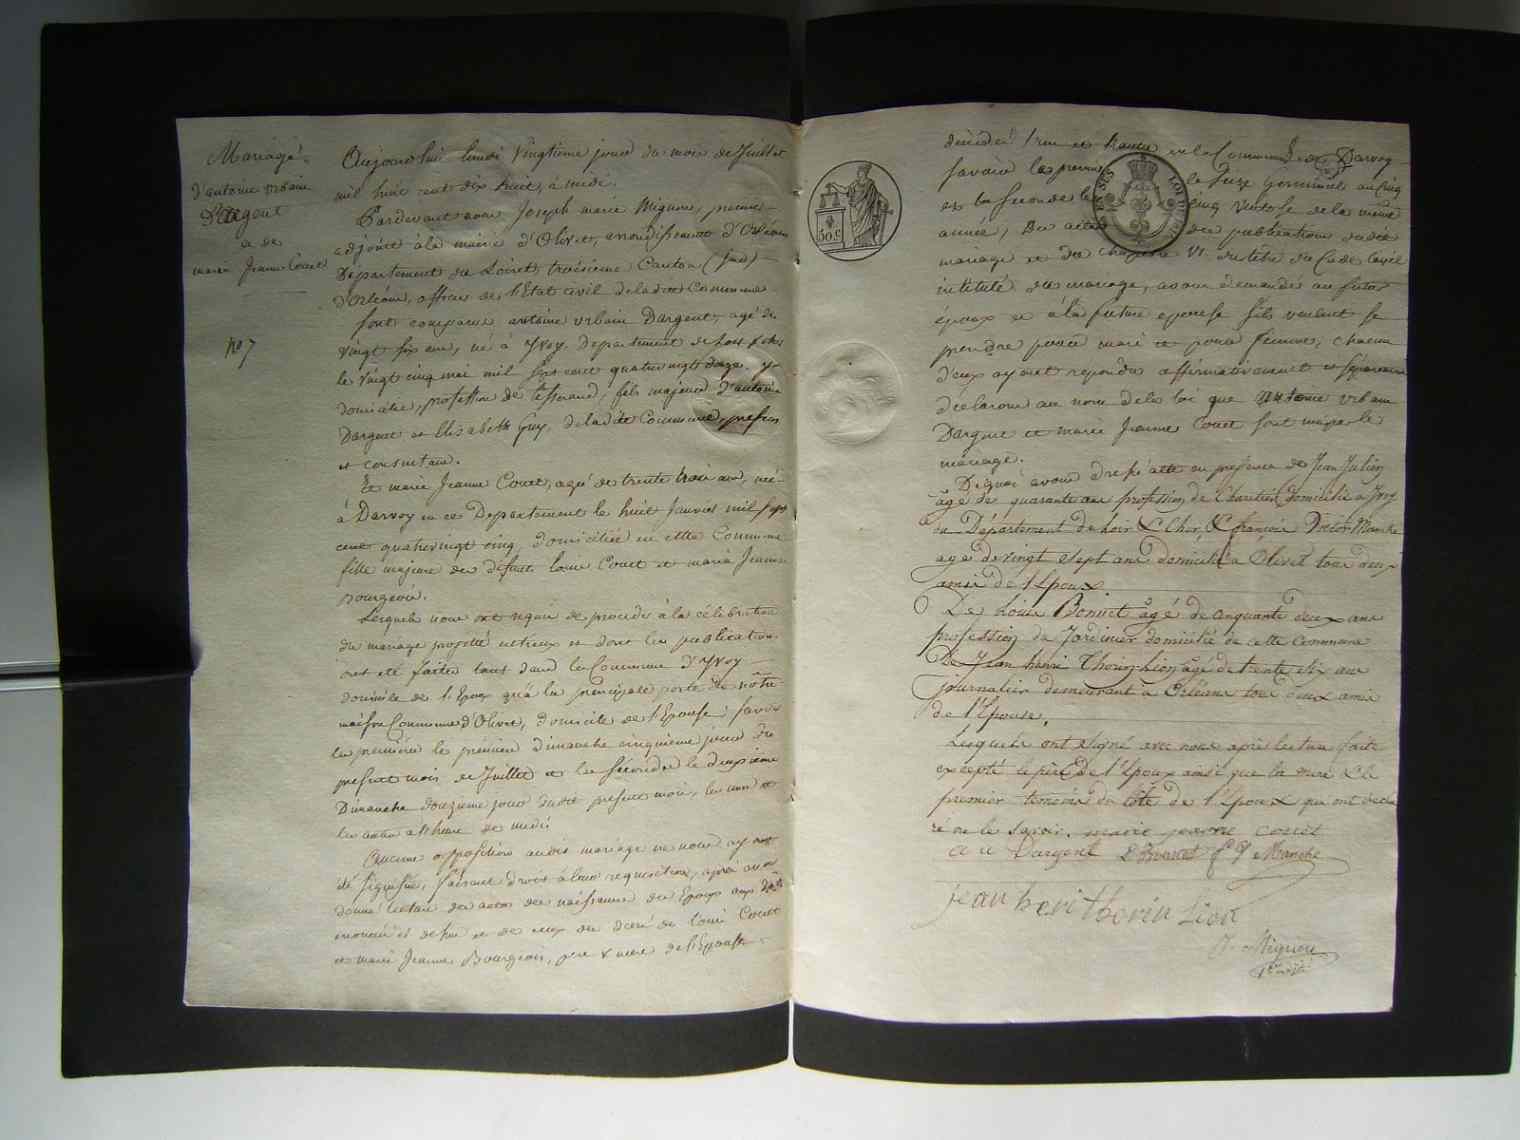 Mariage
d'antoine urbain
Dargent
& de
marie Jeanne Couet
no 7
Aujourd'hui lundi vingtieme jour du mois de Juillet
mil huit cent dix huit, à midi.
Pardevant nous Joseph marie Mignon, premier
adjoint à la mairie d'Olivet, arrondissement d'Orléans
Département du Loiret, troisieme Canton (sud)
d'Orléans, officier de l'Etat civil de ladite Commune
sont comparus antoine urbain Dargent, agé de
vingt six ans, né à Yvoy Departement de Loir & cher
le vingt cinq mai mil sept cent quatre vingt douze, y
domicilié, profession de tisserand, fils majeur d'antoine
Dargent et Elisabeth Guy, de ladite Commune, présens
et consentans.
Et marie Jeanne Couet, agée de trente trois ans, née
à Darvoy en ce Departement le huit Janvier mil sept
cent quatrevingt cinq, domiciliée en cette Commune
fille majeure de defunts Louis Couet et marie Jeanne
Bourgeois.
Lesquels nous ont requis de proceder à la célébration
du mariage projetté entreux et dont les publications
ont été faites tant dans la Commune d'Yvoy
domicile de l'Epoux qu'à la principale porte de nôtre
maison Commune d'Olivet, domicile de l'Epouse; savoir
la première le premier Dimanche cinquieme jour du
present mois de Juillet et la séconde le deuxieme
Dimanche douzieme jour dudit present mois, les uns et
les autres à l'heure de midi
Aucune opposition audit mariage ne nous ayant
été signifiée, faisant droit à leur requisition, après avoir
donné lecture des actes de naissance des Epoux aux dates
énoncées et de ceux de décé de Louis Couet
et marie Jeanne Bourgeois, pere & mere de l'Epouse
50 c.
décédés l'un et l'autre en la Commune de Darvoy
savoir le premier le seize Germinal an cinq
et la seconde le cinq ventose de la même
année, des actes de publication dudit
mariage et du chapitre VI du titre du Code Civil
intitulé du mariage, avons demandé au futur
époux et à la future epouse s'ils veulent se
prendre pour mari et pour femme, chacun
d'eux ayant repondu affirmativement et séparement
déclarons au nom de la loi que antoine urbain
Dargent et marie Jeanne Couet sont unis par le
mariage.
De quoi avons dressé acte en présence de Jean Julien
âgé de quarante ans profession de Charetier domicilié à Yvoy
Département de Loir & Cher, & françois Victor Manche
agé de vingt sept ans domicilié à Olivet tous deux
amis de l'Epoux.
De Louis Bonnet âgé de cinquante deux ans
profession de Jardinier domicilié de cette commune
De Jean henri Thorin Lion âgé de trente six ans
journalier demeurant à Orléans tous deux amis
de l'Epouse.
Lesquels ont signé avec nous après lecture faite
excepté le père de l'Epoux ainsi que la mere & le
premier temoins du côté de l'Epoux qui ont décla
ré ne le savoir. marie jeanne couet
a u Dargent L Bonnet f V Manche
jean henri thorin Lion
J. Mignon
1er adjt